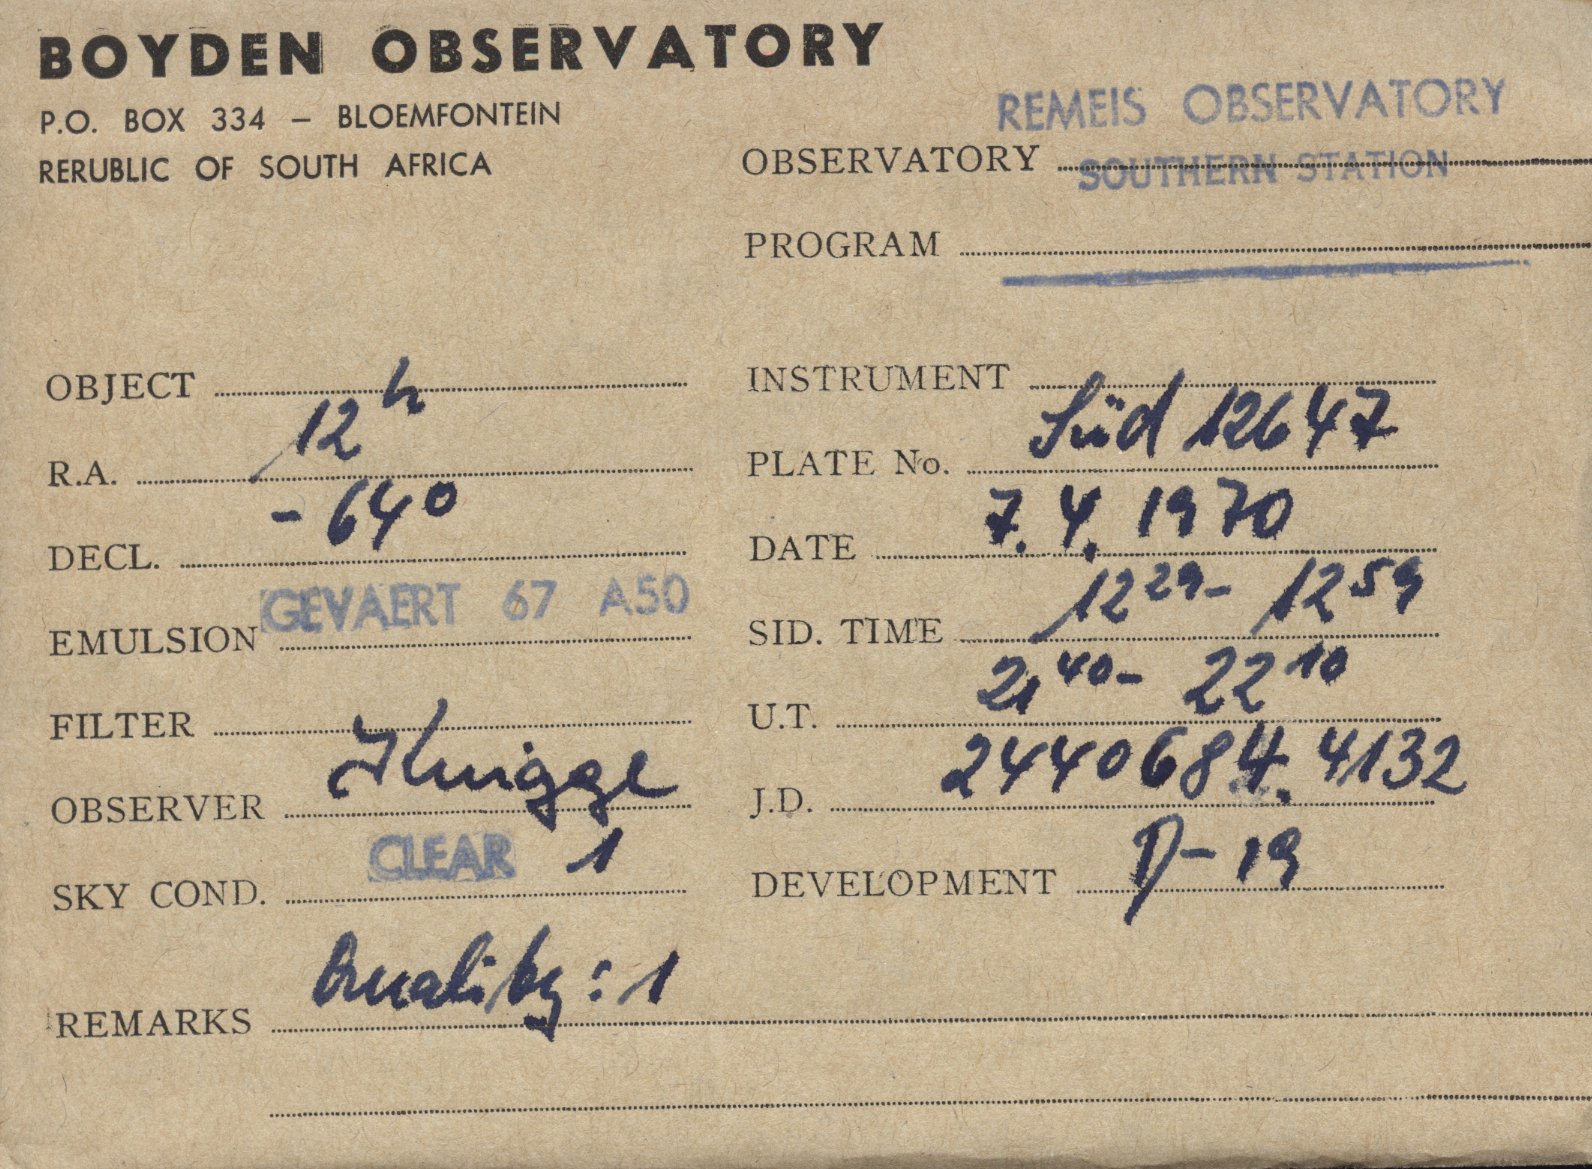 BOYDEN OBSERVATORY
P.O. BOX 334 – BLOEMFONTEIN
RERUBLIC OF SOUTH AFRICA
REMEIS OBSERVATORY
OBSERVATORY SOUTHERN STATION
PROGRAM
OBJECT
R.A. 12h
DECL. -64°
EMULSION GEVAERT 67 A50
FILTER
OBSERVER Knigge
SKY COND. CLEAR 1
REMARKS Quality: 1
INSTRUMENT
PLATE No. Süd 12647
DATE 7.4.1970
SID. TIME 12 29 - 12 59
U.T. 21 40 - 22 10
J.D. 2440684.4132
DEVELOPMENT D-19